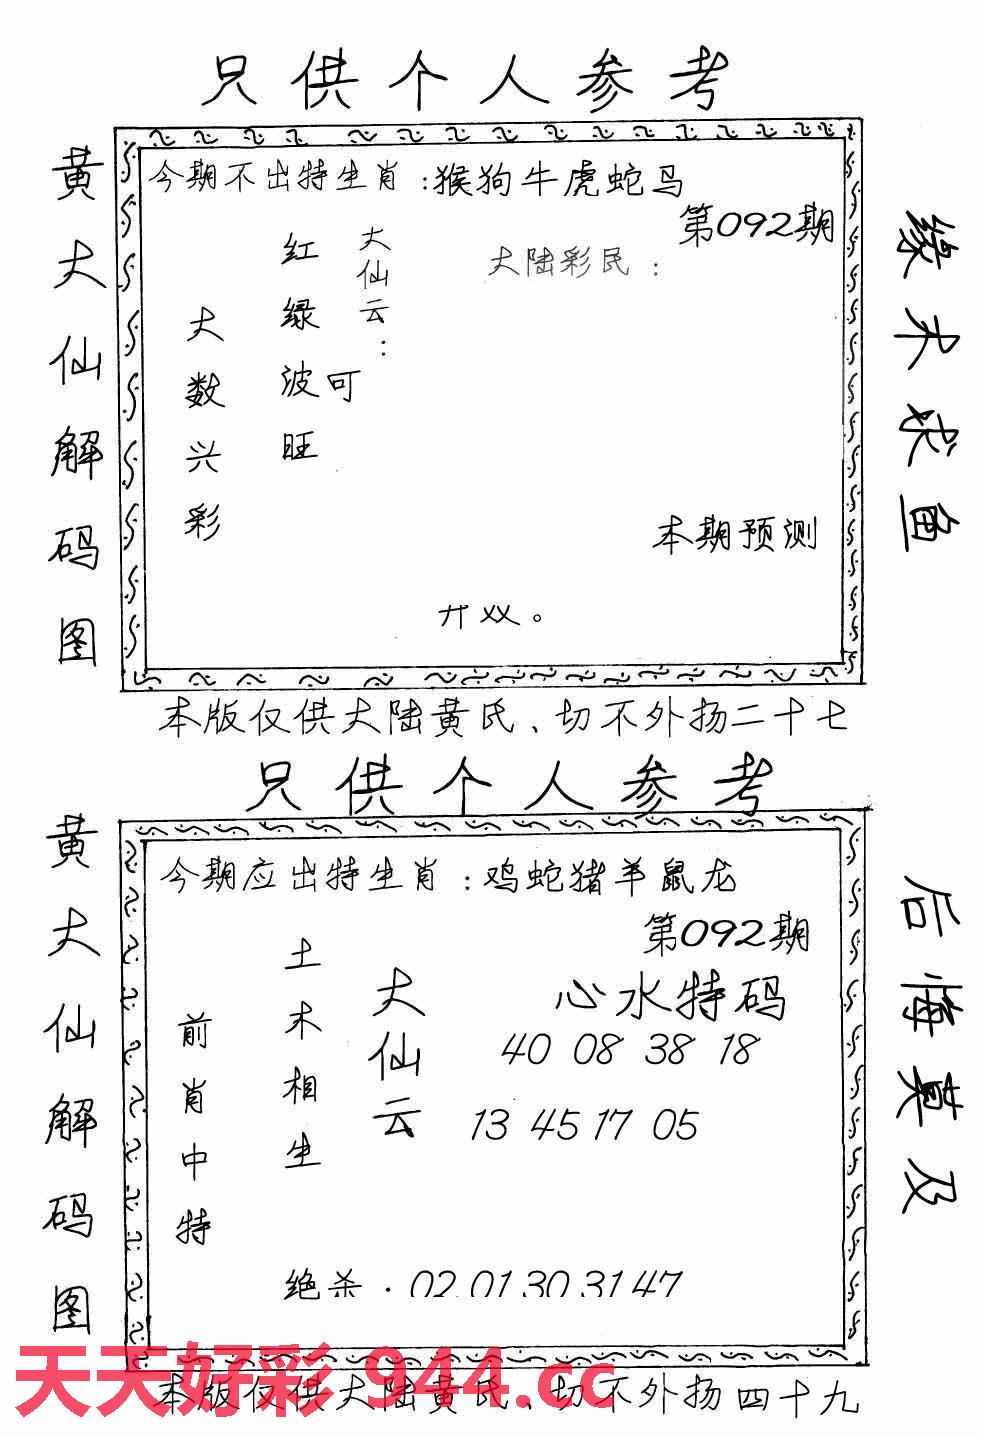 只供个人参考
黄大仙解码图
今期不出特生肖:猴狗牛虎蛇马
第092期
大陆彩民:
大仙云:
可
红绿波旺
大数兴彩
本期预测
开双。
缘木求鱼
本版仅供大陆黄氏、切不外扬二十七
只供个人参考
黄大仙解码图
今期应出特生肖:鸡蛇猪羊鼠龙
第092期
心水特码
40 08 38 18
13 45 17 05
大仙云
土木相生
前肖中特
绝杀.02 01 30 31 47
后悔莫及
天天好彩 944.cc
本版仅供大陆黄氏、切不外扬四十九